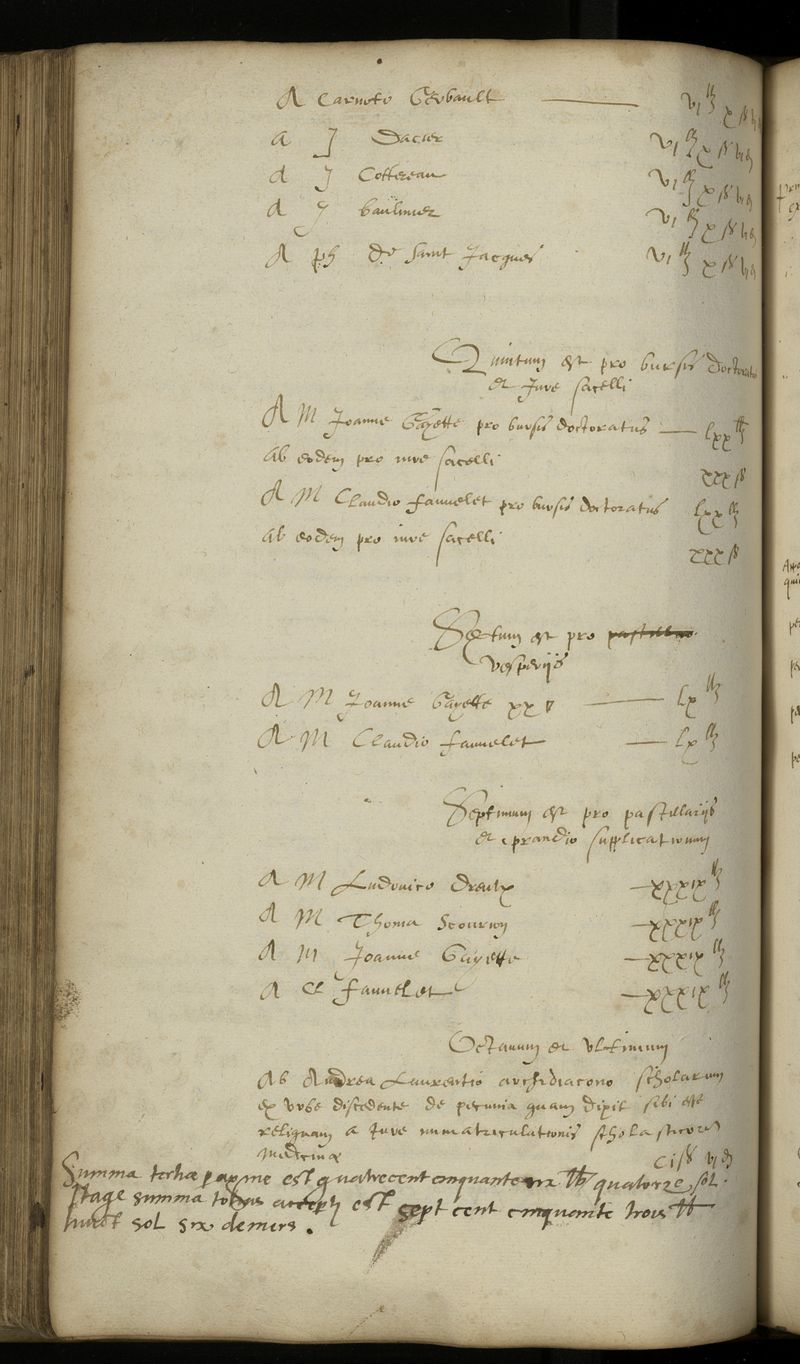 A Carnoto Gerbault — vi lb x s vi d
A J Dacier vi lb x s vi d
A J Cottereau vi lb x s vi d
A J baulmier vi lb x s vi d
A ph de saint Jacques vi lb x s vi d
Quintum est pro bursis doctoratus
et Jure sacelli
A M Joanne Gayette pro bursis doctoratus — lxx lb
ab eodem pro iure sacelli xxx s
A M Claudio fauuelet pro bursis doctoratus lxx lb
ab eodem pro iure sacelli xxx s
Sextum est pro
vesperijs
A M Joanne Gayette xx — lx lb
A M Claudio fauuelet — lx lb
Septimum est pro pastillarijs
et prandio supplicationum
A M Ludouico Dreulx — xxxix lb
A M Thoma Scouron — xxxix lb
A M Joanne Gayette — xxxix lb
A Cl fauuelet — xxxix lb
Octauum et vltimum
Ab Andrea Laurentio archidiacono scholarum
ex vrbe discedente de pecunia quam dixit sibi esse
reliquam a Jure immatriculationis scholasticorum
medicinæ ci s vi d
Summa est quatrecent cinquante six lb quatorze sol
summa est sept cent cinquante trois lb
huict sol six deniers.